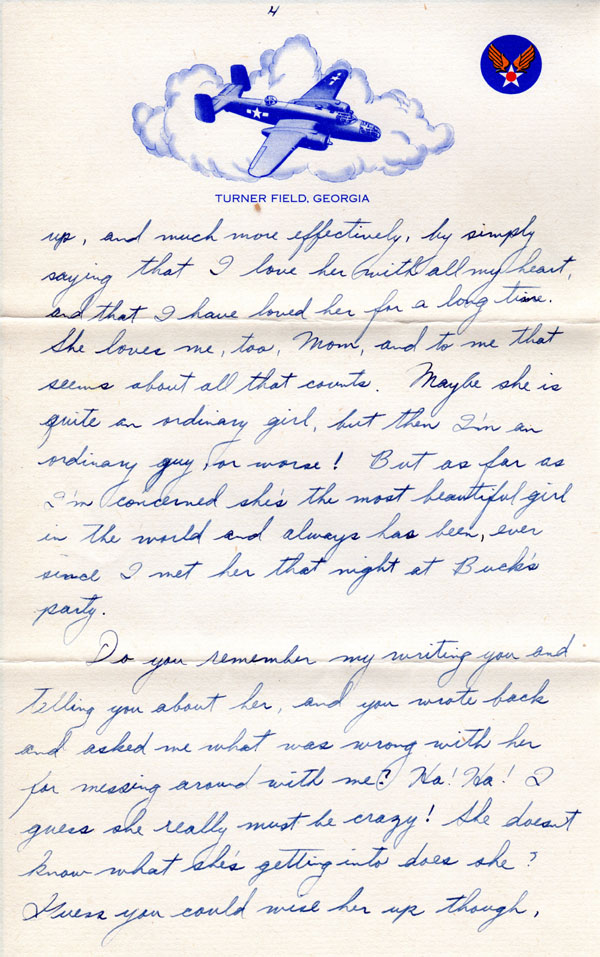 4
TURNER FIELD, GEORGIA
up, and much more effectively, by simply
saying that I love her with all my heart,
and that I have loved her for a long time.
She loves me, too, Mom, and to me that
seems about all that counts. Maybe she is
quite an ordinary girl, but then I'm an
ordinary guy, or worse! But as far as
I'm concerned she's the most beautiful girl
in the world and always has been, ever
since I met her that night at Buck's
party.
Do you remember my writing you and
telling you about her, and you wrote back
and asked me what was wrong with her
for messing around with me? Ha! Ha! I
guess she really must be crazy! She doesn't
know what she's getting into does she?
Guess you could wise her up though,